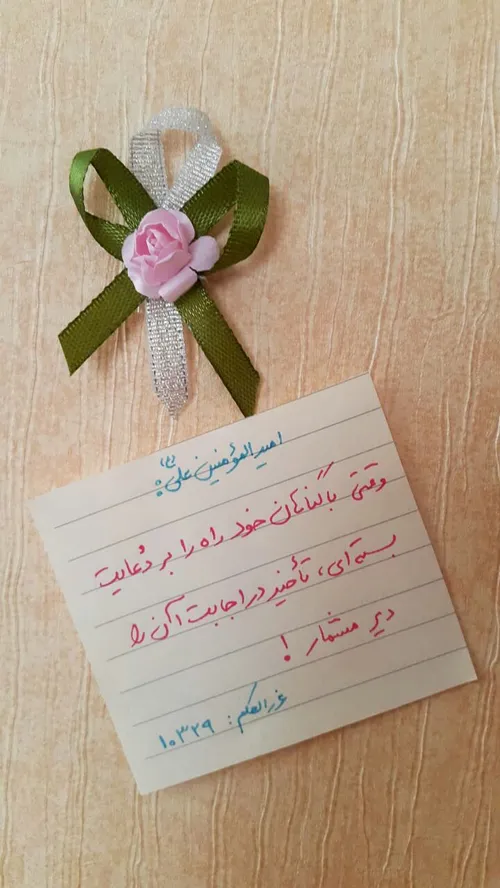 امیرالمؤمنین علی (ع):
وقتی با گناهان خود راه را بر دُعایت
بسته‌ای، تأخیر در اجابت آن را
دیر مشمار!
غررالحکم: ۱۰۳۲۹